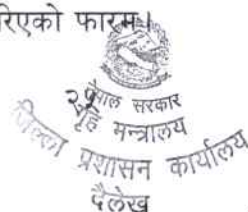 रिएको फारम।
नेपाल सरकार
गृह मन्त्रालय
जिल्ला प्रशासन कार्यालय
दैलेख